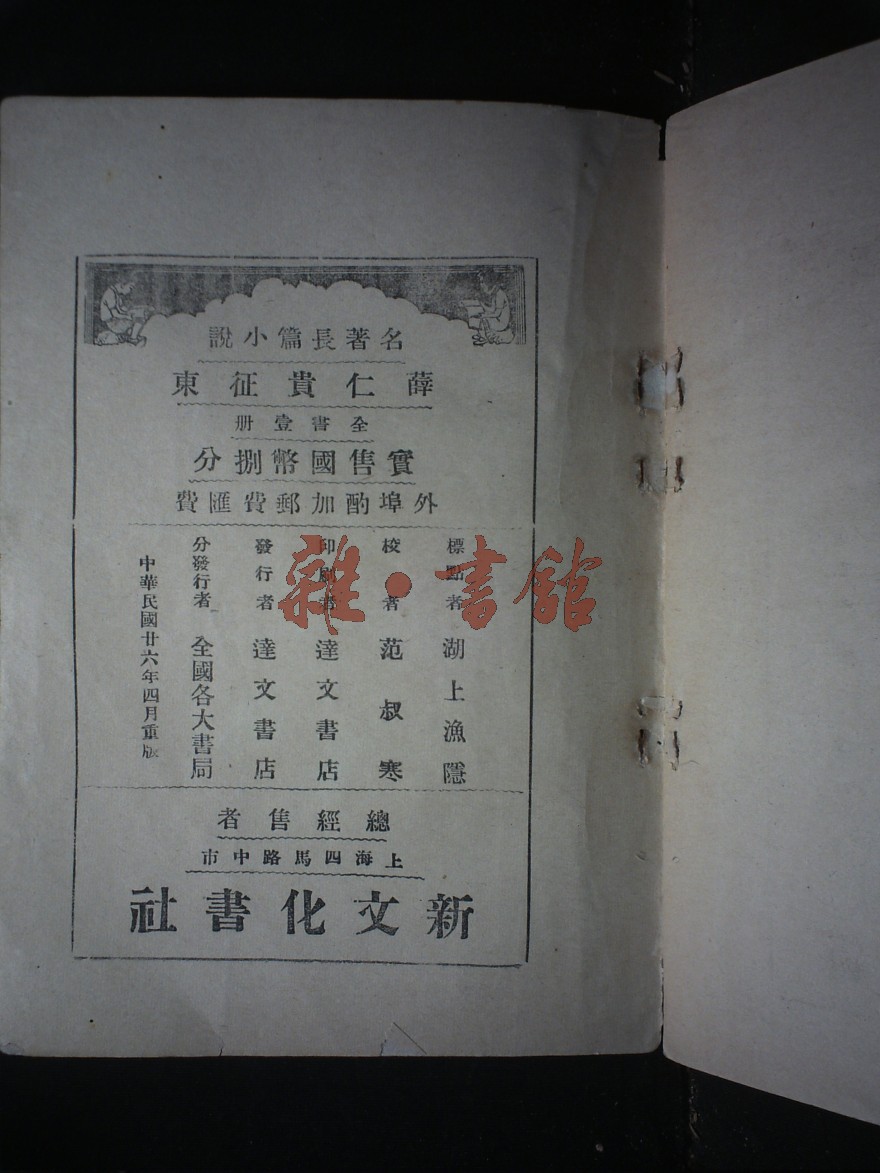 名著長篇小說
薛仁貴征東
全書壹册
實售國幣捌分
外埠酌加郵費匯費
標點者 湖上漁隱
校者 范叔寒
印刷者 達文書店
發行者 達文書店
分發行者 全國各大書局
中華民國廿六年四月重版
總經售者
上海四馬路中市
新文化書社
雜·書館